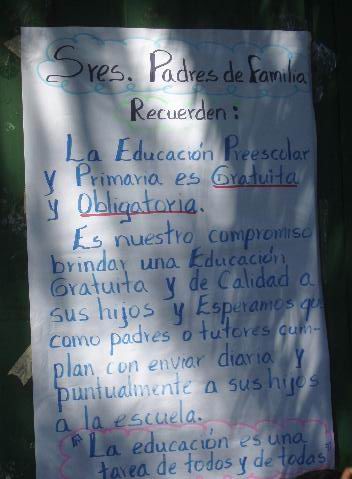 Sres. Padres de Familia
Recuerden:
La Educación Preescolar
y Primaria es Gratuita
y Obligatoria.
Es nuestro compromiso
brindar una Educación
Gratuita y de Calidad a
sus hijos y Esperamos que
como padres o tutores cum-
plan con enviar diaria y
puntualmente a sus hijos
a la escuela.
"La educación es una
tarea de todos y de todas"